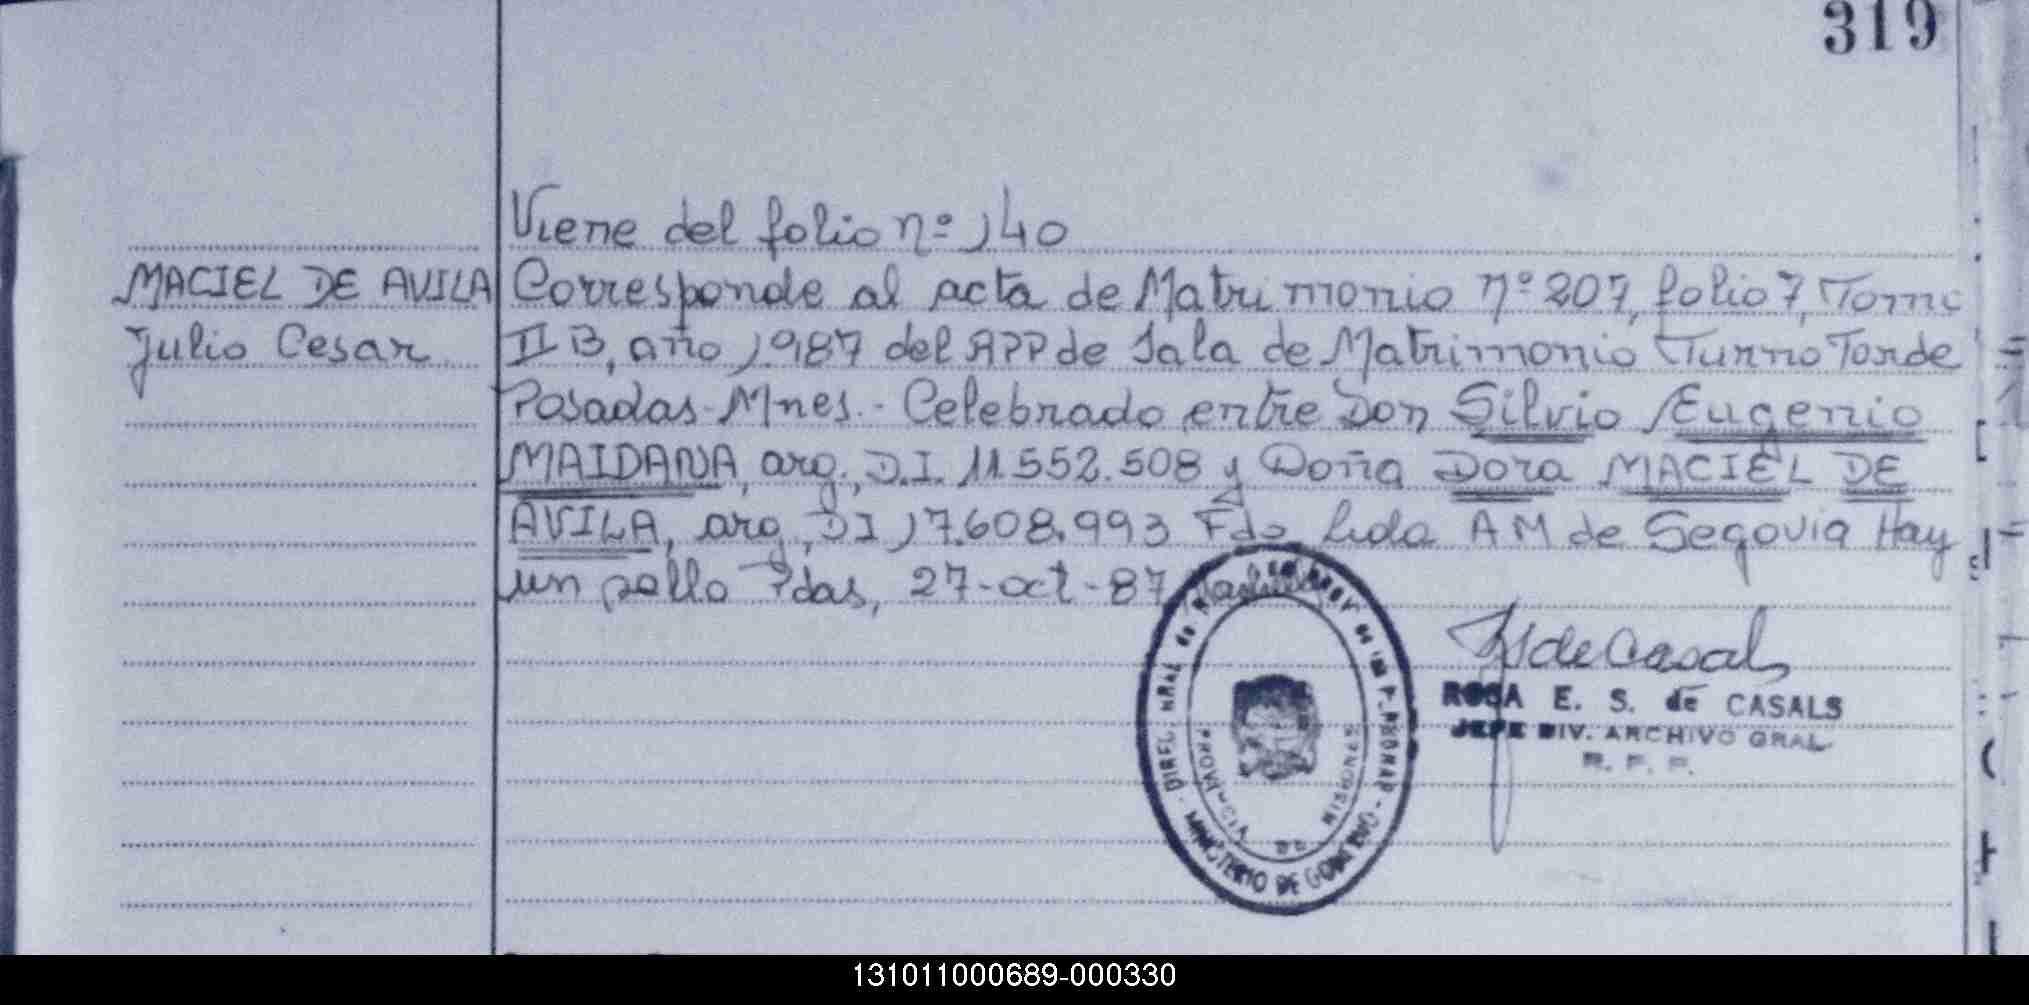 319
Viene del folio nº 140
MACIEL DE AVILA
Julio Cesar
Corresponde al acta de Matrimonio nº 207, folio 7, Tomo
II B, año 1987 del RPP de Sala de Matrimonio Turno Tarde
Posadas-Mnes.- Celebrado entre Don Silvio Eugenio
MAIDANA, arg., D.I. 11.552.508 y Doña Dora MACIEL DE
AVILA, arg., DI 17.608.993 Fdo Lida AM de Segovia Hay
un sello Pdas, 27-oct-87
de Casals
ROSA E. S. de CASALS
JEFE DIV. ARCHIVO GRAL.
R. P. P.
PROVINCIA DE MISIONES
MINISTERIO DE GOBIERNO
131011000689-000330